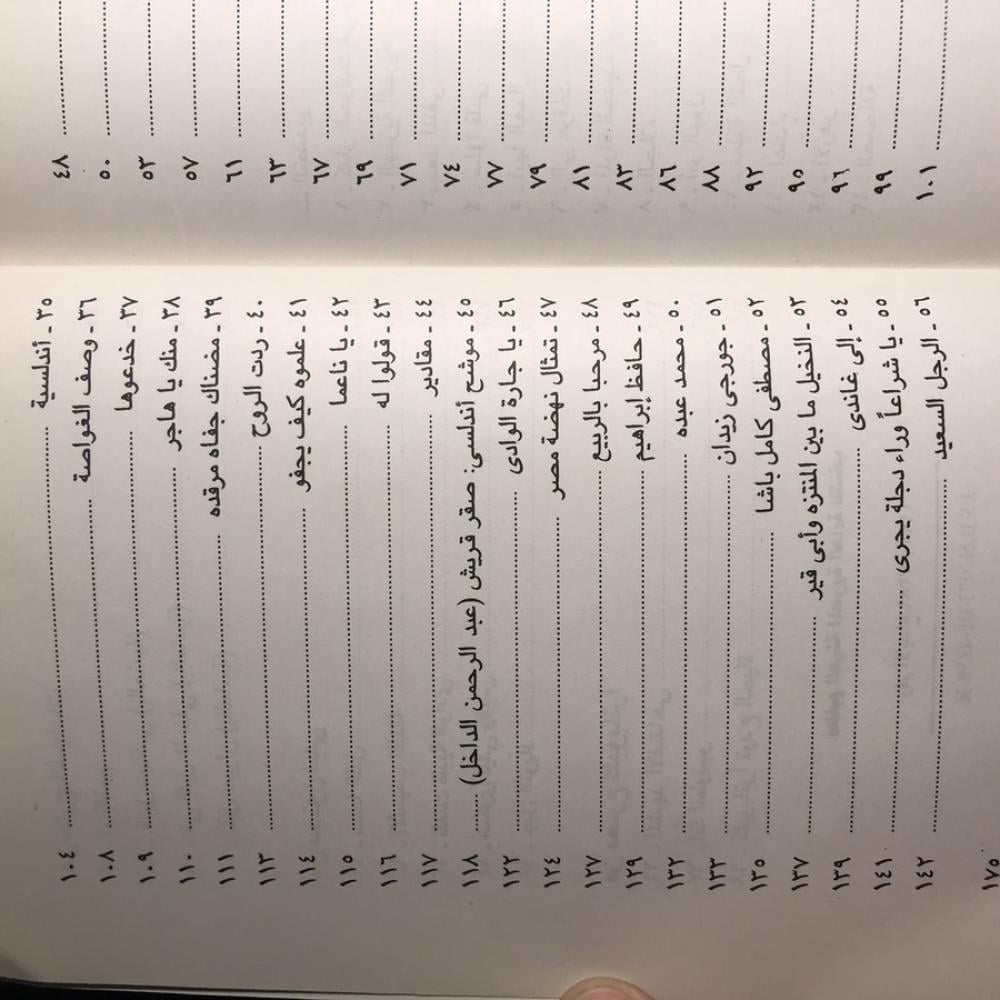 ٤٨
٥٠
٥٣
٥٧
٦١
٦٣
٦٧
٦٩
٧١
٧٤
٧٧
٧٩
٨١
٨٣
٨٦
٨٨
٩٢
٩٥
٩٦
٩٩
١٠١
٣٥ - أندلسية ........ ١٠٤
٣٦ - وصف الغواصة ........ ١٠٨
٣٧ - خدعوها ........ ١٠٩
٣٨ - منك يا هاجر ........ ١١٠
٣٩ - مضناك جفاه مرقده ........ ١١١
٤٠ - ردت الروح ........ ١١٣
٤١ - علموه كيف يجفو ........ ١١٤
٤٢ - يا ناعما ........ ١١٥
٤٣ - قولوا له ........ ١١٦
٤٤ - مقادير ........ ١١٧
٤٥ - موشح أندلسى: صقر قريش (عبد الرحمن الداخل) ........ ١١٨
٤٦ - يا جارة الوادى ........ ١٢٢
٤٧ - تمثال نهضة مصر ........ ١٢٤
٤٨ - مرحبا بالربيع ........ ١٢٧
٤٩ - حافظ إبراهيم ........ ١٢٩
٥٠ - محمد عبده ........ ١٣٢
٥١ - جورجى زيدان ........ ١٣٣
٥٢ - مصطفى كامل باشا ........ ١٣٥
٥٣ - النخيل ما بين المنتزه وأبى قير ........ ١٣٧
٥٤ - إلى غاندى ........ ١٣٩
٥٥ - يا شراعاً وراء دجلة يجرى ........ ١٤١
٥٦ - الرجل السعيد ........ ١٤٢
١٧٥